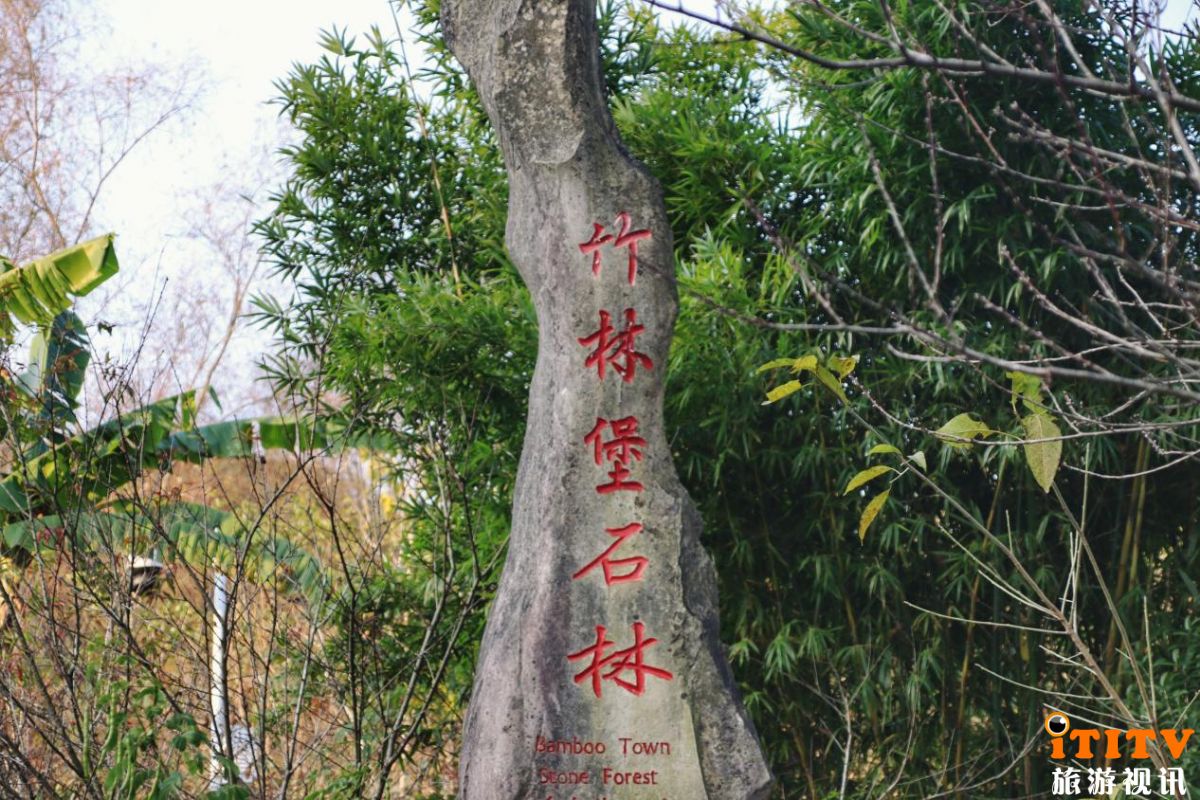 竹林堡石林
Bamboo Town
Stone Forest
iTITV
旅游视讯